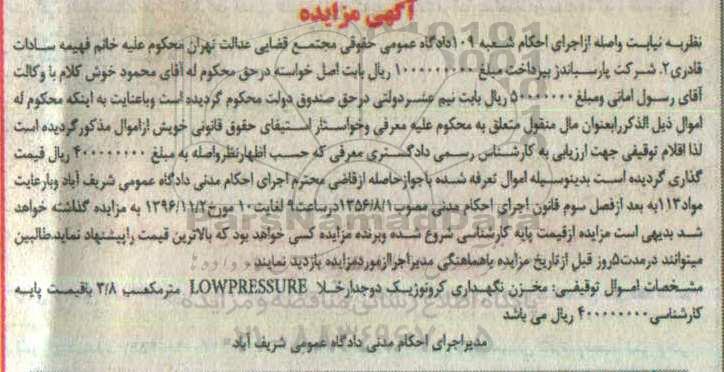 آگهی مزایده
نظریه نیابت واصله ازاجرای احکام شعبه ۱۰۹دادگاه عمومی حقوقی مجتمع قضایی عدالت تهران محکوم علیه خانم فهیمه سادات
قادری۲. شرکت پارسیاندژ بپرداخت مبلغ ۱۰۰۰۰۰۰۰۰۰ ریال بابت اصل خواسته درحق محکوم له آقای محمود خوش کلام با وکالت
آقای رسول امانی ومبلغ ۵۰۰۰۰۰۰۰ ریال بابت نیم عشردولتی درحق صندوق دولت محکوم گردیده است وباعنایت به اینکه محکوم له
اموال ذیل الذکررابعنوان مال منقول متعلق به محکوم علیه معرفی وخواستار استیفای حقوق قانونی خویش ازاموال مذکورگردیده است
لذا اقلام توقیفی جهت ارزیابی به کارشناس رسمی دادگستری معرفی که حسب اظهارنظرواصله به مبلغ ۴۰۰۰۰۰۰۰۰ ریال قیمت
گذاری گردیده است بدینوسیله اموال تعرفه شده باجوازحاصله ازقاضی محترم اجرای احکام مدنی دادگاه عمومی شریف آباد وبارعایت
مواد۱۱۳به بعد ازفصل سوم قانون اجرای احکام مدنی مصوب۱۳۵۶/۸/۱درساعت۹ لغایت۱۰ مورخ۱۳۹۶/۱۱/۲ به مزایده گذاشته خواهد
شد بدیهی است مزایده ازقیمت پایه کارشناسی شروع شده وبرنده مزایده کسی خواهد بود که بالاترین قیمت راپیشنهاد نماید.طالبین
میتوانند درمدت۵روز قبل ازتاریخ مزایده باهماهنگی مدیراجراازموردمزایده بازدید نمایند
مشخصات اموال توقیفی: مخزن نگهداری کرونوژیک دوجدارخلا LOWPRESSURE مترمکعب ۳/۸ باقیمت پایه
کارشناسی۴۰۰۰۰۰۰۰۰ ریال می باشد
مدیراجرای احکام مدنی دادگاه عمومی شریف آباد
ParsNamadData
پایگاه اطلاع رسانی مناقصه و مزایده
۰۲۱-۸۸۳۴۹۶۷۰-۵